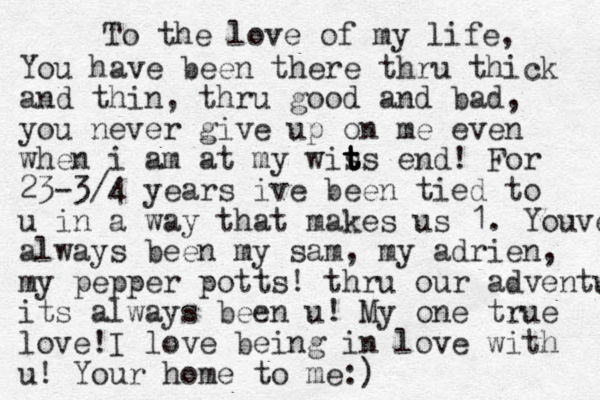 To the love of my life,
You have been there thru thick
and thin, thru good and bad,
you never give up on me even
when i am at my wits end! For
23-3/4 years ive been tied to
u in a way that makes us 1. Youve
always been my sam, my adrien,
my pepper potts! thru our adventu
its always been u! My one true
love!I love being in love with
u! Your home to me:)